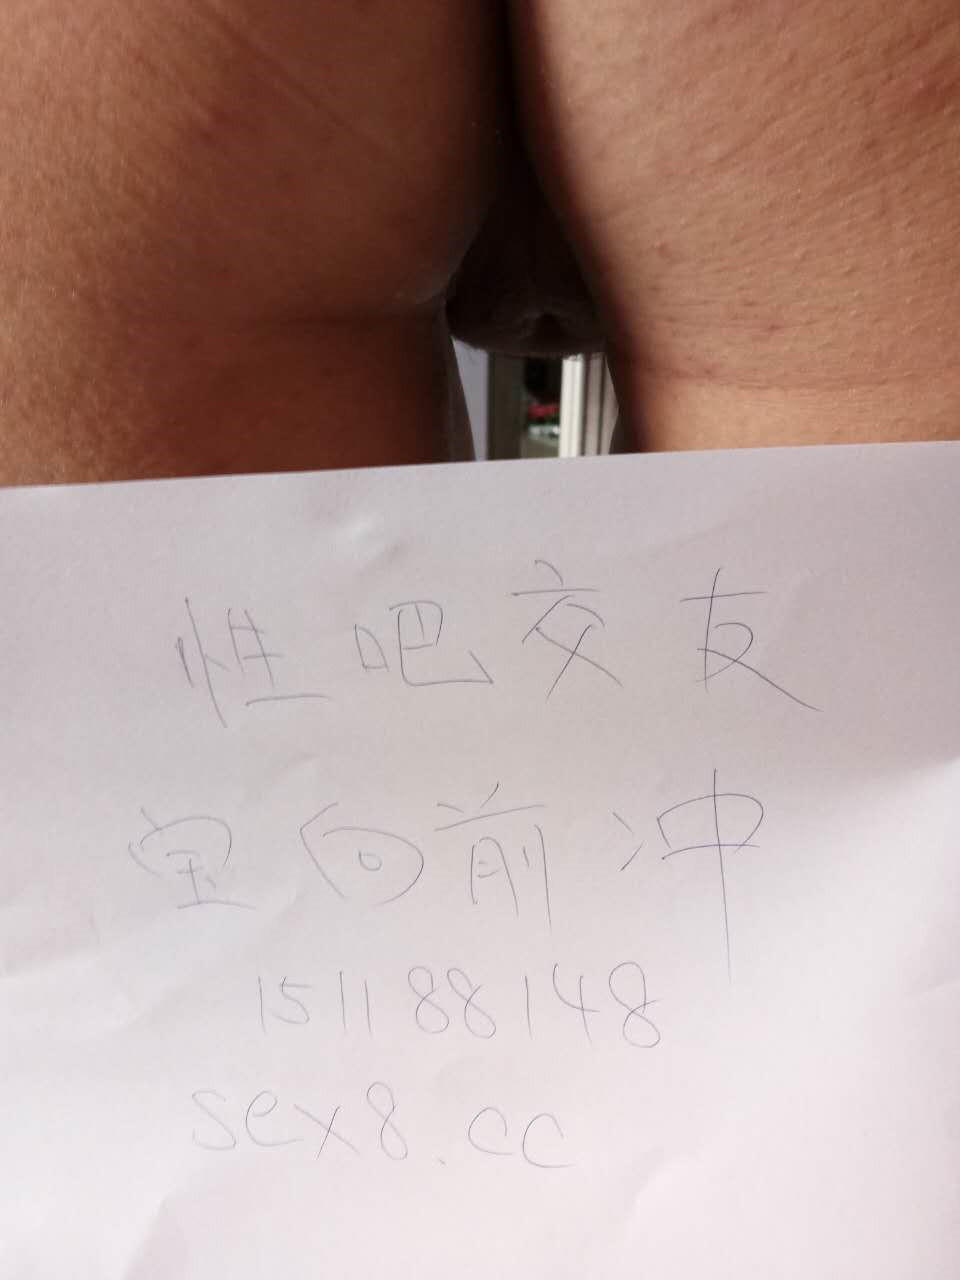 性吧交友
宝向前冲
151188148
sex8.cc